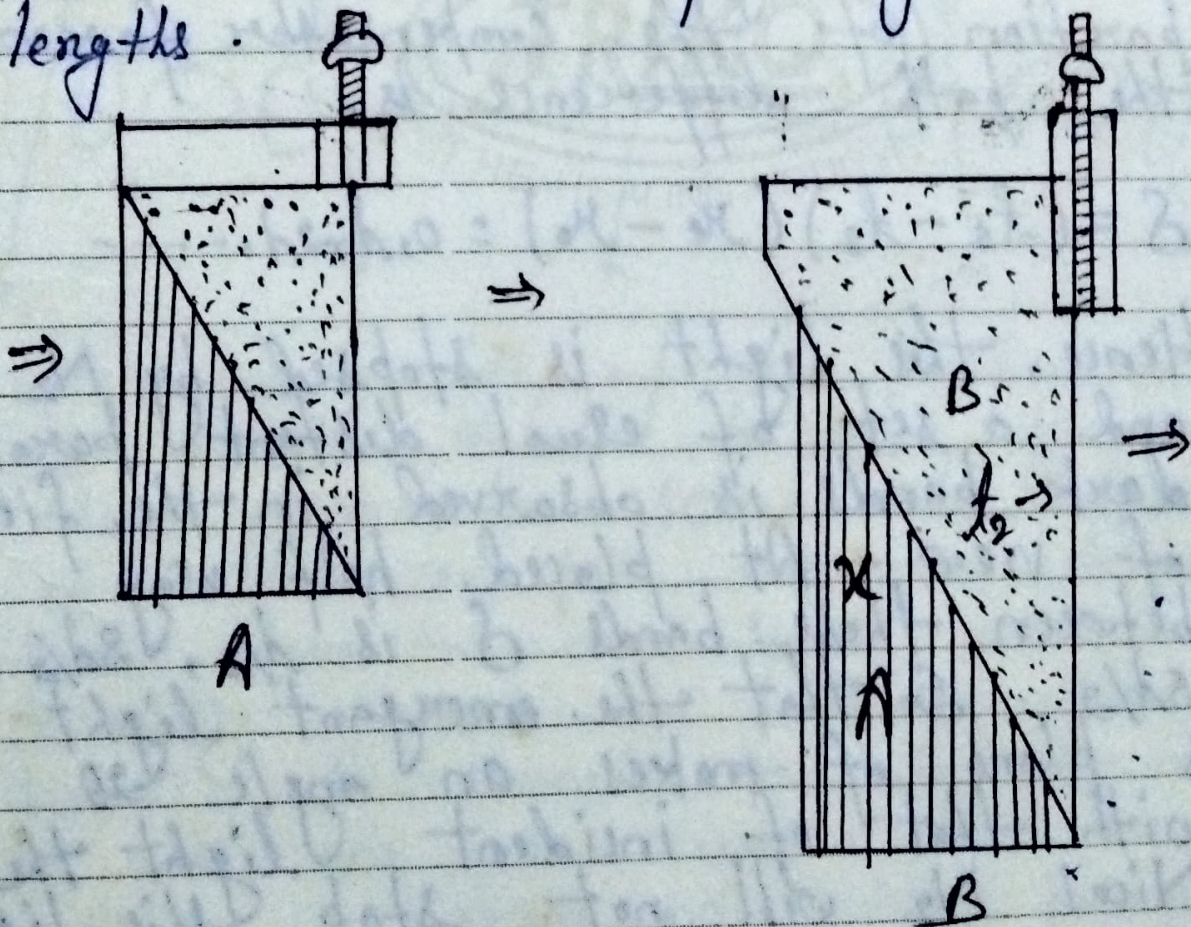 lengths .
⇒
⇒
B
t₂ →
⇒
x
A
A
B